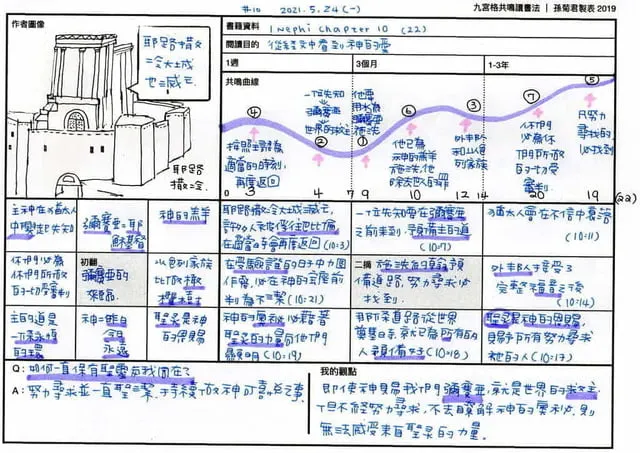 #10 2021.5.24(一)
九宮格共鳴讀書法 | 孫菊君製表 2019
作者圖像
耶路撒
冷大城
也毀滅了.
耶路
撒冷.
書籍資料
1 Nephi chapter 10 (22)
閱讀目的
從經文中看到神的愛
1週
3個月
1-3年
共鳴曲線
④
按照主認為
適當的時刻,
再度返回
②
一位先知
彌賽亞
世界的救主
①
他要
用水為
彌賽亞
施洗
⑥
他已為
神的羔羊
施洗,他
除去世人的罪
③
外邦人
和以色
列家族
⑦
你們
必為你
們所做
的一切受
審判
⑤
只要努力
尋求的
必找到
0
3
4
7
9
10
12
14
17
20
19
(22)
主神在猶太人
中興起先知
彌賽亞=耶
穌基督
神的羔羊
耶路撒冷大城毀滅了,
在適當時會再度返回 (10:3)
一位先知要在彌賽亞
之前來到,預備主的道
(10:7)
猶太人會在不信中衰落
(10:11)
你們必為
你們所做
的一切受審判
初翻
彌賽亞的
來臨
以色列家族
比做橄
欖樹
在受驗證的日子中力圖
作惡,必在神的審判寶座前
判為不潔 (10:21)
二摘
備道路,努力尋求必
找到.
外邦人接受了
完整福音之後
(10:14)
主的道是
一條永恆
的環
神=昨日
今日
永遠
聖靈是神
的恩賜
神的奧祕必藉著
聖靈的力量向他們
顯明 (10:19)
那條道路從世
界奠基以來就已為所有的
人預備好 (10:18)
聖靈是神的恩賜,
賜予所有努力尋求
祂的人 (10:17)
Q: 如何一直保有聖靈與我同在?
A: 努力尋求並一直聖潔,持續做神可喜悅之事.
我的觀點
即使神賜給我們彌賽亞,就是世界的救主,
但不經努力尋求,不去瞭解神的奧祕,則
無法感受來自聖靈的力量.